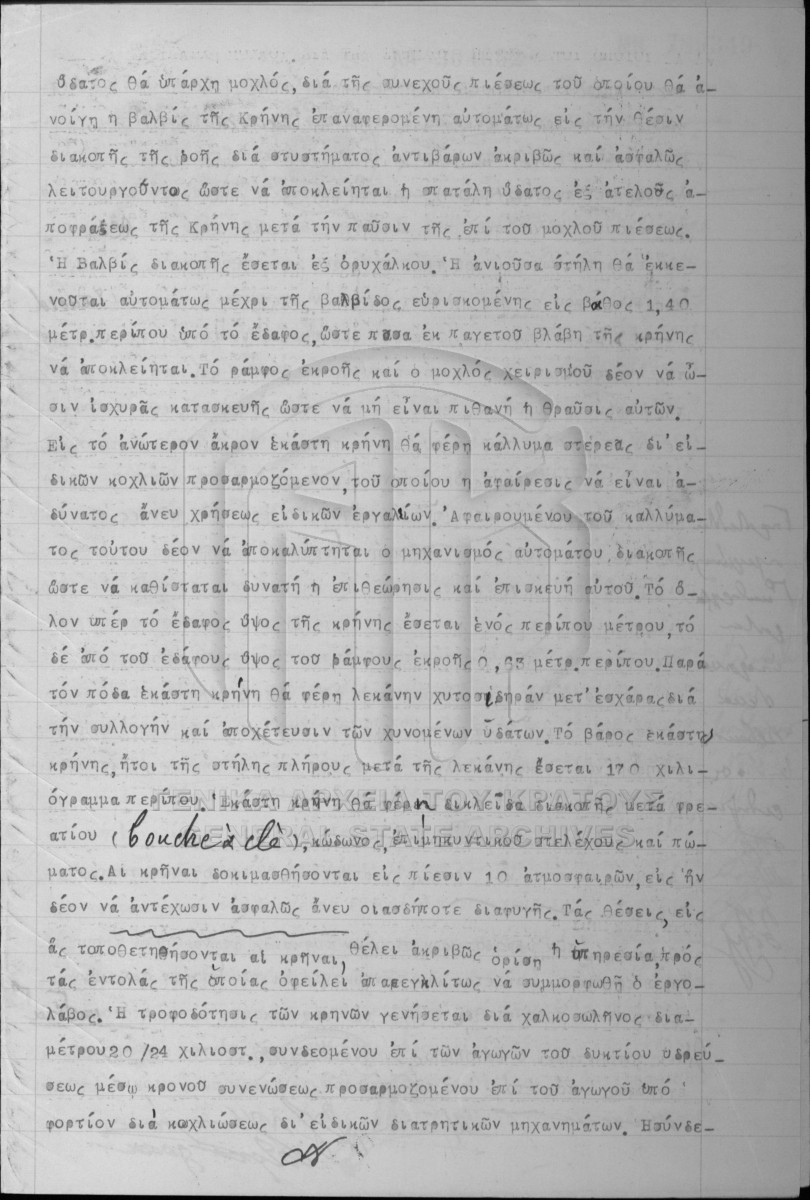 ὕδατος θά ὑπάρχη μοχλός, διά τῆς συνεχοῦς πιέσεως τοῦ ὁποίου θά ἀ-
νοίγη η βαλβίς τῆς Κρήνης ἐπαναφερομένη αὐτομάτως εἰς τήν θέσιν
διακοπῆς τῆς ροῆς διά στυστήματος ἀντιβάρων ἀκριβῶς καί ἀσφαλῶς
λειτουργοῦντος ὥστε νά ἀποκλείηται ἡ σπατάλη ὕδατος ἐξ ἀτελοῦς ἀ-
ποφράξεως τῆς Κρήνης μετά τήν παῦσιν τῆς ἐπί τοῦ μοχλοῦ πιέσεως.
Ἡ Βαλβίς διακοπῆς ἔσεται ἐξ ὀρυχάλκου. Ἡ ἀνιοῦσα στήλη θά ἐκκε-
νοῦται αὐτομάτως μέχρι τῆς βαλβίδος εὑρισκομένης εἰς βάθος 1,40
μέτρ.περίπου ὑπό τό ἔδαφος, ὥστε πᾶσα ἐκ παγετοῦ βλάβη τῆς κρήνης
νά ἀποκλείηται. Τό ράμφος ἐκροῆς καί ο μοχλός χειρισμοῦ δέον νά ὦ-
σιν ἰσχυρᾶς κατασκευῆς ὥστε νά μή εἶναι πιθανή ἡ θραῦσις αὐτῶν.
Εἰς τό ἀνώτερον ἄκρον ἑκάστη κρήνη θά φέρη κάλλυμα στερεᾶς δι'εἰ-
δικῶν κοχλιῶν προσαρμοζόμενον, τοῦ ὁποίου η ἀφαίρεσις νά εἶναι ἀ-
δύνατος ἄνευ χρήσεως εἰδικῶν ἐργαλείων. Ἀφαιρουμένου τοῦ καλλύμα-
τος τούτου δέον νά ἀποκαλύπτηται ο μηχανισμός αὐτομάτου διακοπῆς
ὥστε νά καθίσταται δυνατή ἡ ἐπιθεώρησις καί ἐπισκευή αὐτοῦ. Τό ὅ-
λον ὑπέρ τό ἔδαφος ὕψος τῆς κρήνης ἔσεται ἑνός περίπου μέτρου, τό
δέ ἀπό τοῦ ἐδάφους ὕψος τοῦ ράμφους ἐκροῆς 0,63 μέτρ.περίπου. Παρά
τόν πόδα ἑκάστη κρήνη θά φέρη λεκάνην χυτοσιδηράν μετ'ἐσχάρας διά
τήν συλλογήν καί ἀποχέτευσιν τῶν χυνομένων ὑδάτων. Τό βάρος ἑκάστης
κρήνης, ἤτοι τῆς στήλης πλήρους μετά τῆς λεκάνης ἔσεται 170 χιλι-
όγραμμα περίπου. Ἑκάστη κρήνη θά φέρη δικλεῖδα διακοπῆς μετά φρε-
ατίου (bouche à clè), κώδωνος, ἐπιμηκυντικοῦ στελέχους καί πώ-
ματος. Αἱ κρῆναι δοκιμασθήσονται εἰς πίεσιν 10 ἀτμοσφαιρῶν, εἰς ἥν
δέον νά ἀντέχωσιν ἀσφαλῶς ἄνευ οιασδήποτε διαφυγῆς. Τάς θέσεις, εἰς
ἅς τοποθετηθήσονται αἱ κρῆναι, θέλει ἀκριβῶς ὁρίση ἡ ὑπηρεσία, πρός
τάς ἐντολάς τῆς ὁποίας ὀφείλει ἀπαρεγκλίτως νά συμμορφωθῆ ὁ ἐργο-
λάβος. Ἡ τροφοδότησις τῶν κρηνῶν γενήσεται διά χαλκοσωλῆνος δια-
μέτρου 20/24 χιλιοστ., συνδεομένου ἐπί τῶν ἀγωγῶν τοῦ δυκτίου ὑδρεύ-
σεως μέσῳ κρουνοῦ συνενώσεως προσαρμοζομένου ἐπί τοῦ ἀγωγοῦ ὑπό
φορτίον διά κοχλιώσεως δι'εἰδικῶν διατρητικῶν μηχανημάτων. Ησύνδε-
ΓΕΝΙΚΑ ΑΡΧΕΙΑ ΤΟΥ ΚΡΑΤΟΥΣ
GENERAL STATE ARCHIVES